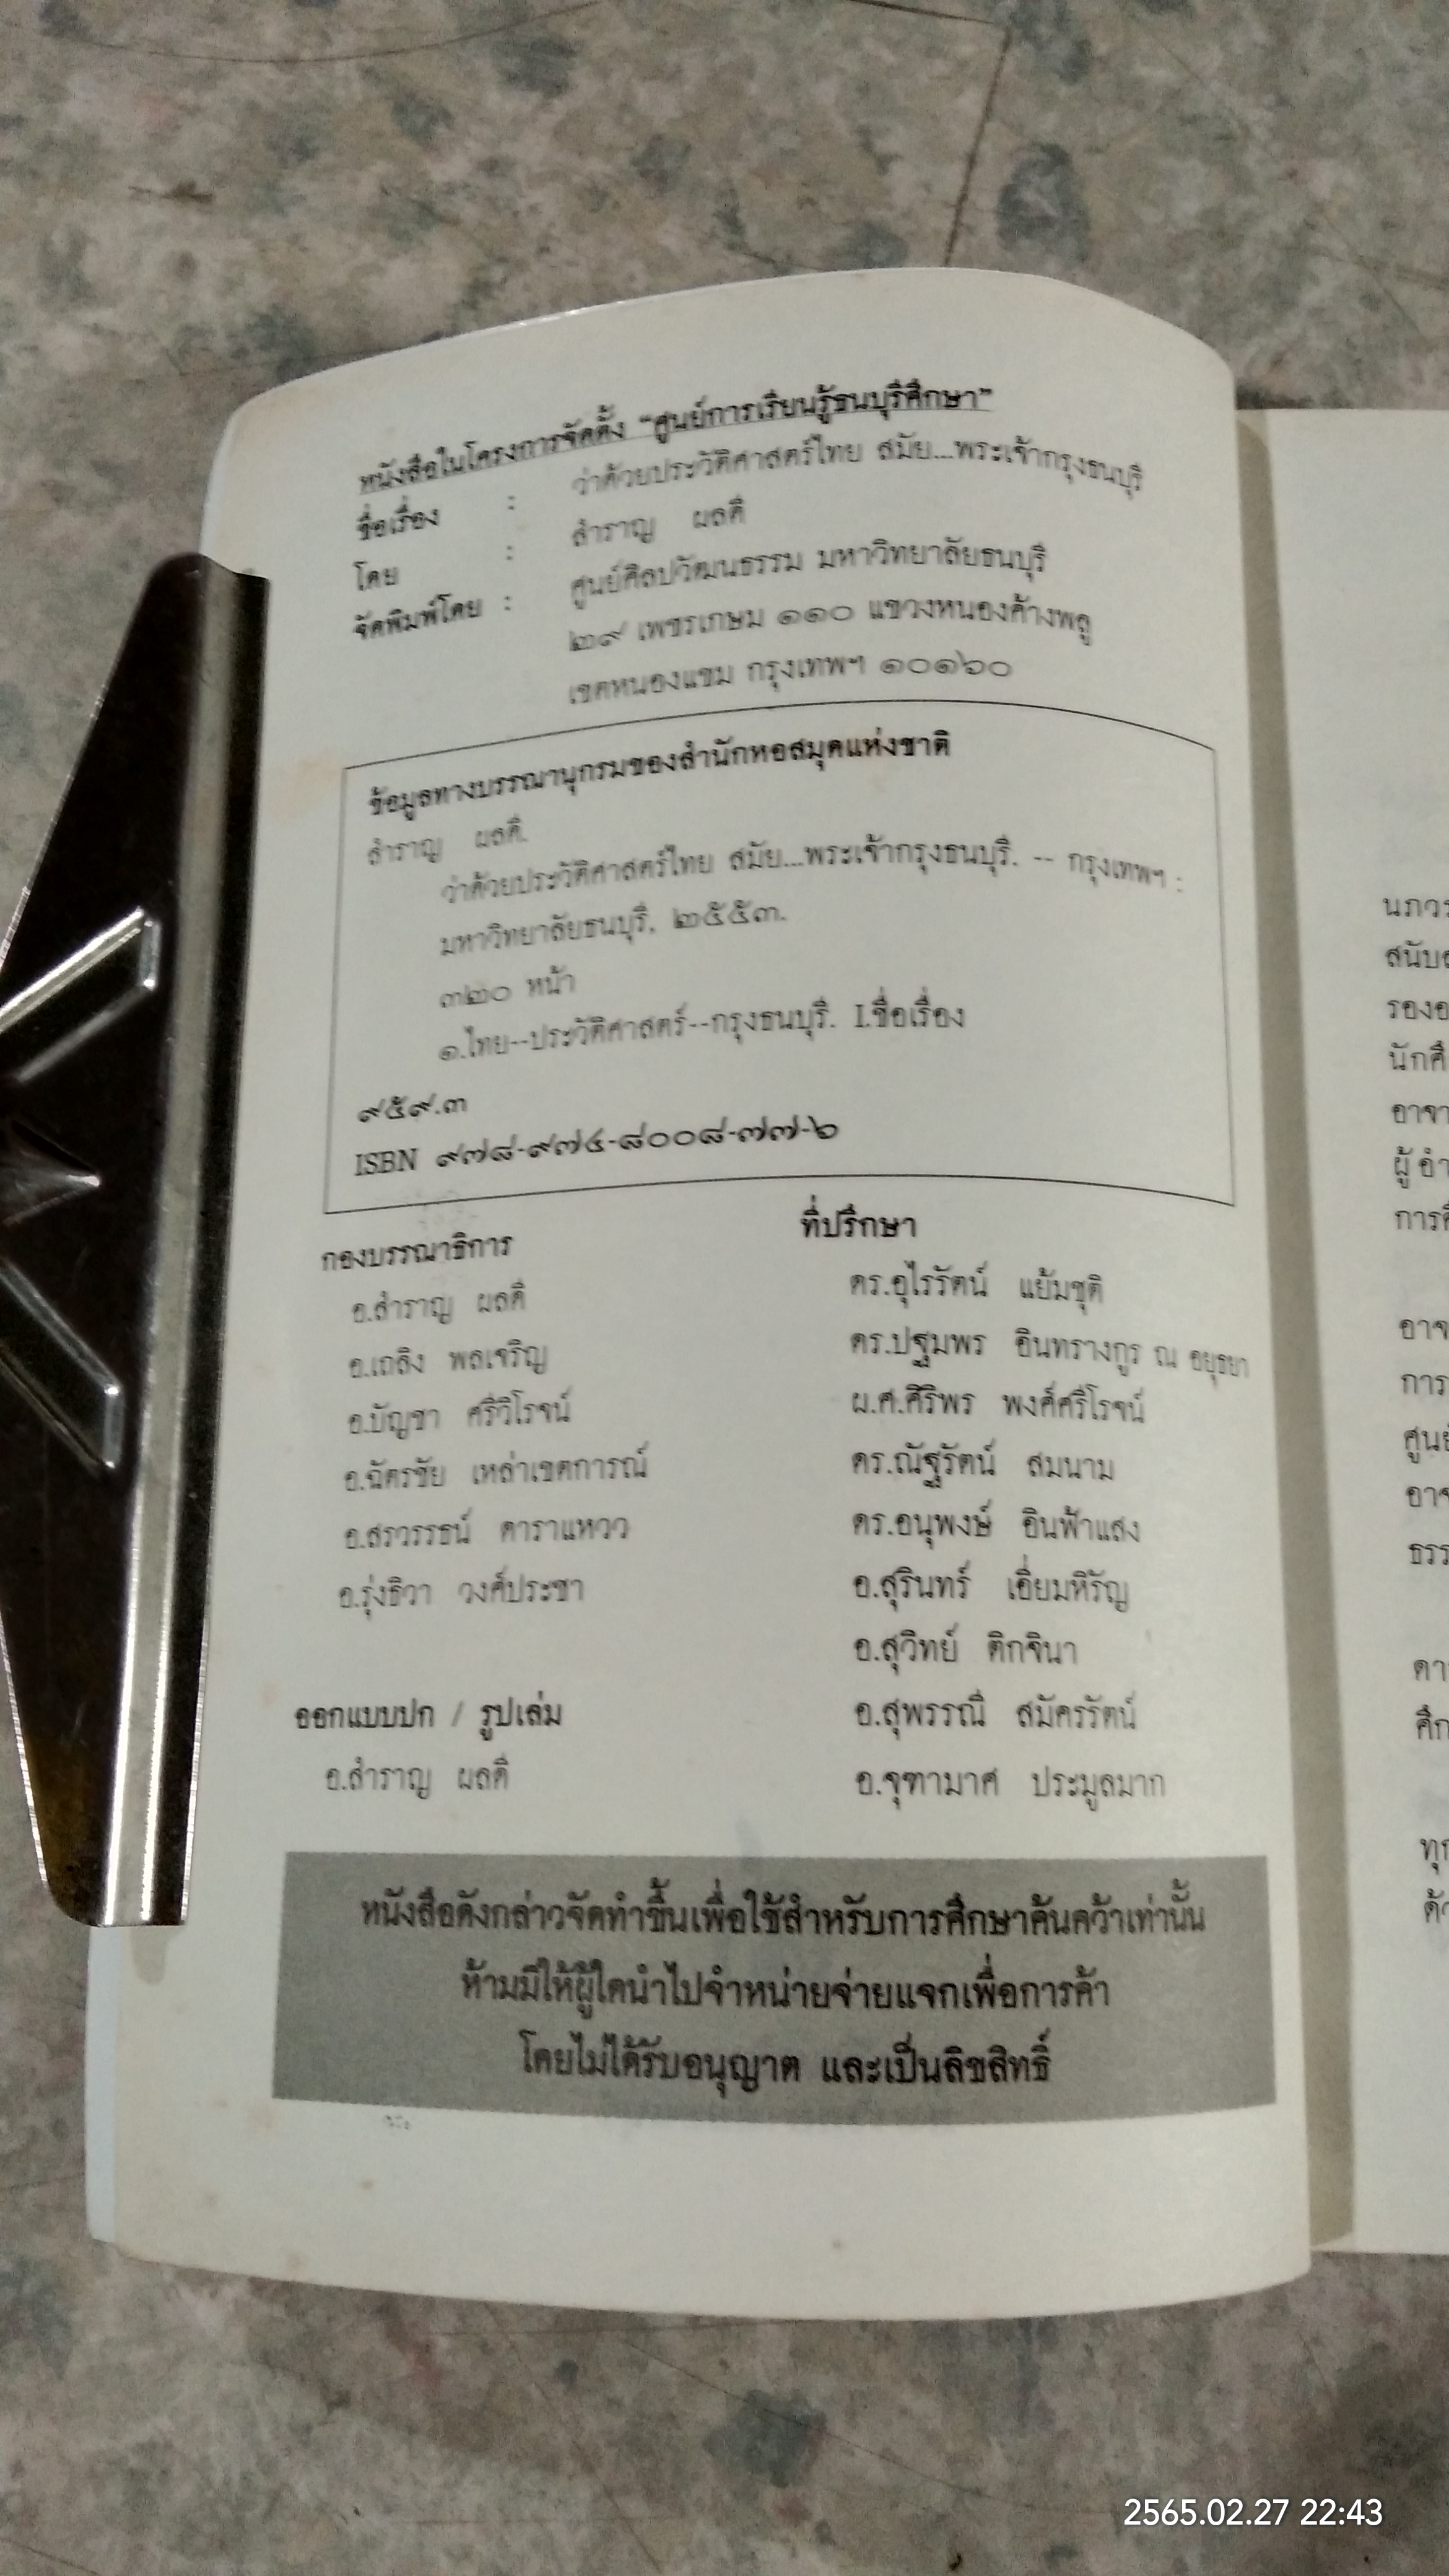 หนังสือในโครงการจัดตั้ง “ศูนย์การเรียนรู้ธนบุรีศึกษา”
ชื่อเรื่อง : ว่าด้วยประวัติศาสตร์ไทย สมัย...พระเจ้ากรุงธนบุรี
โดย : สำราญ ผลดี
จัดพิมพ์โดย : ศูนย์ศิลปวัฒนธรรม มหาวิทยาลัยธนบุรี
๒๙ เพชรเกษม ๑๑๐ แขวงหนองค้างพลู
เขตหนองแขม กรุงเทพฯ ๑๐๑๖๐
ข้อมูลทางบรรณานุกรมของสำนักหอสมุดแห่งชาติ
สำราญ ผลดี.
ว่าด้วยประวัติศาสตร์ไทย สมัย...พระเจ้ากรุงธนบุรี. -- กรุงเทพฯ :
มหาวิทยาลัยธนบุรี, ๒๕๕๓.
๓๒๐ หน้า
๑.ไทย--ประวัติศาสตร์--กรุงธนบุรี. I.ชื่อเรื่อง
๙๕๙.๓
ISBN ๙๗๘-๙๗๔-๘๐๐๘-๗๗-๖
กองบรรณาธิการ
อ.สำราญ ผลดี
อ.เถลิง พลเจริญ
อ.บัญชา ศรีวิโรจน์
อ.ฉัตรชัย เหล่าเขตการณ์
อ.สรวรรธน์ ดาราแหวว
อ.รุ่งธิวา วงค์ประชา
ออกแบบปก / รูปเล่ม
อ.สำราญ ผลดี
ที่ปรึกษา
ดร.อุไรรัตน์ แย้มชุติ
ดร.ปฐมพร อินทรางกูร ณ อยุธยา
ผ.ศ.ศิริพร พงศ์ศรีโรจน์
ดร.ณัฐรัตน์ สมนาม
ดร.อนุพงษ์ อินฟ้าแสง
อ.สุรินทร์ เอี่ยมหิรัญ
อ.สุวิทย์ ติกจินา
อ.สุพรรณี สมัครรัตน์
อ.จุฑามาศ ประมูลมาก
หนังสือดังกล่าวจัดทำขึ้นเพื่อใช้สำหรับการศึกษาค้นคว้าเท่านั้น
ห้ามมิให้ผู้ใดนำไปจำหน่ายจ่ายแจกเพื่อการค้า
โดยไม่ได้รับอนุญาต และเป็นลิขสิทธิ์
2565.02.27 22:43